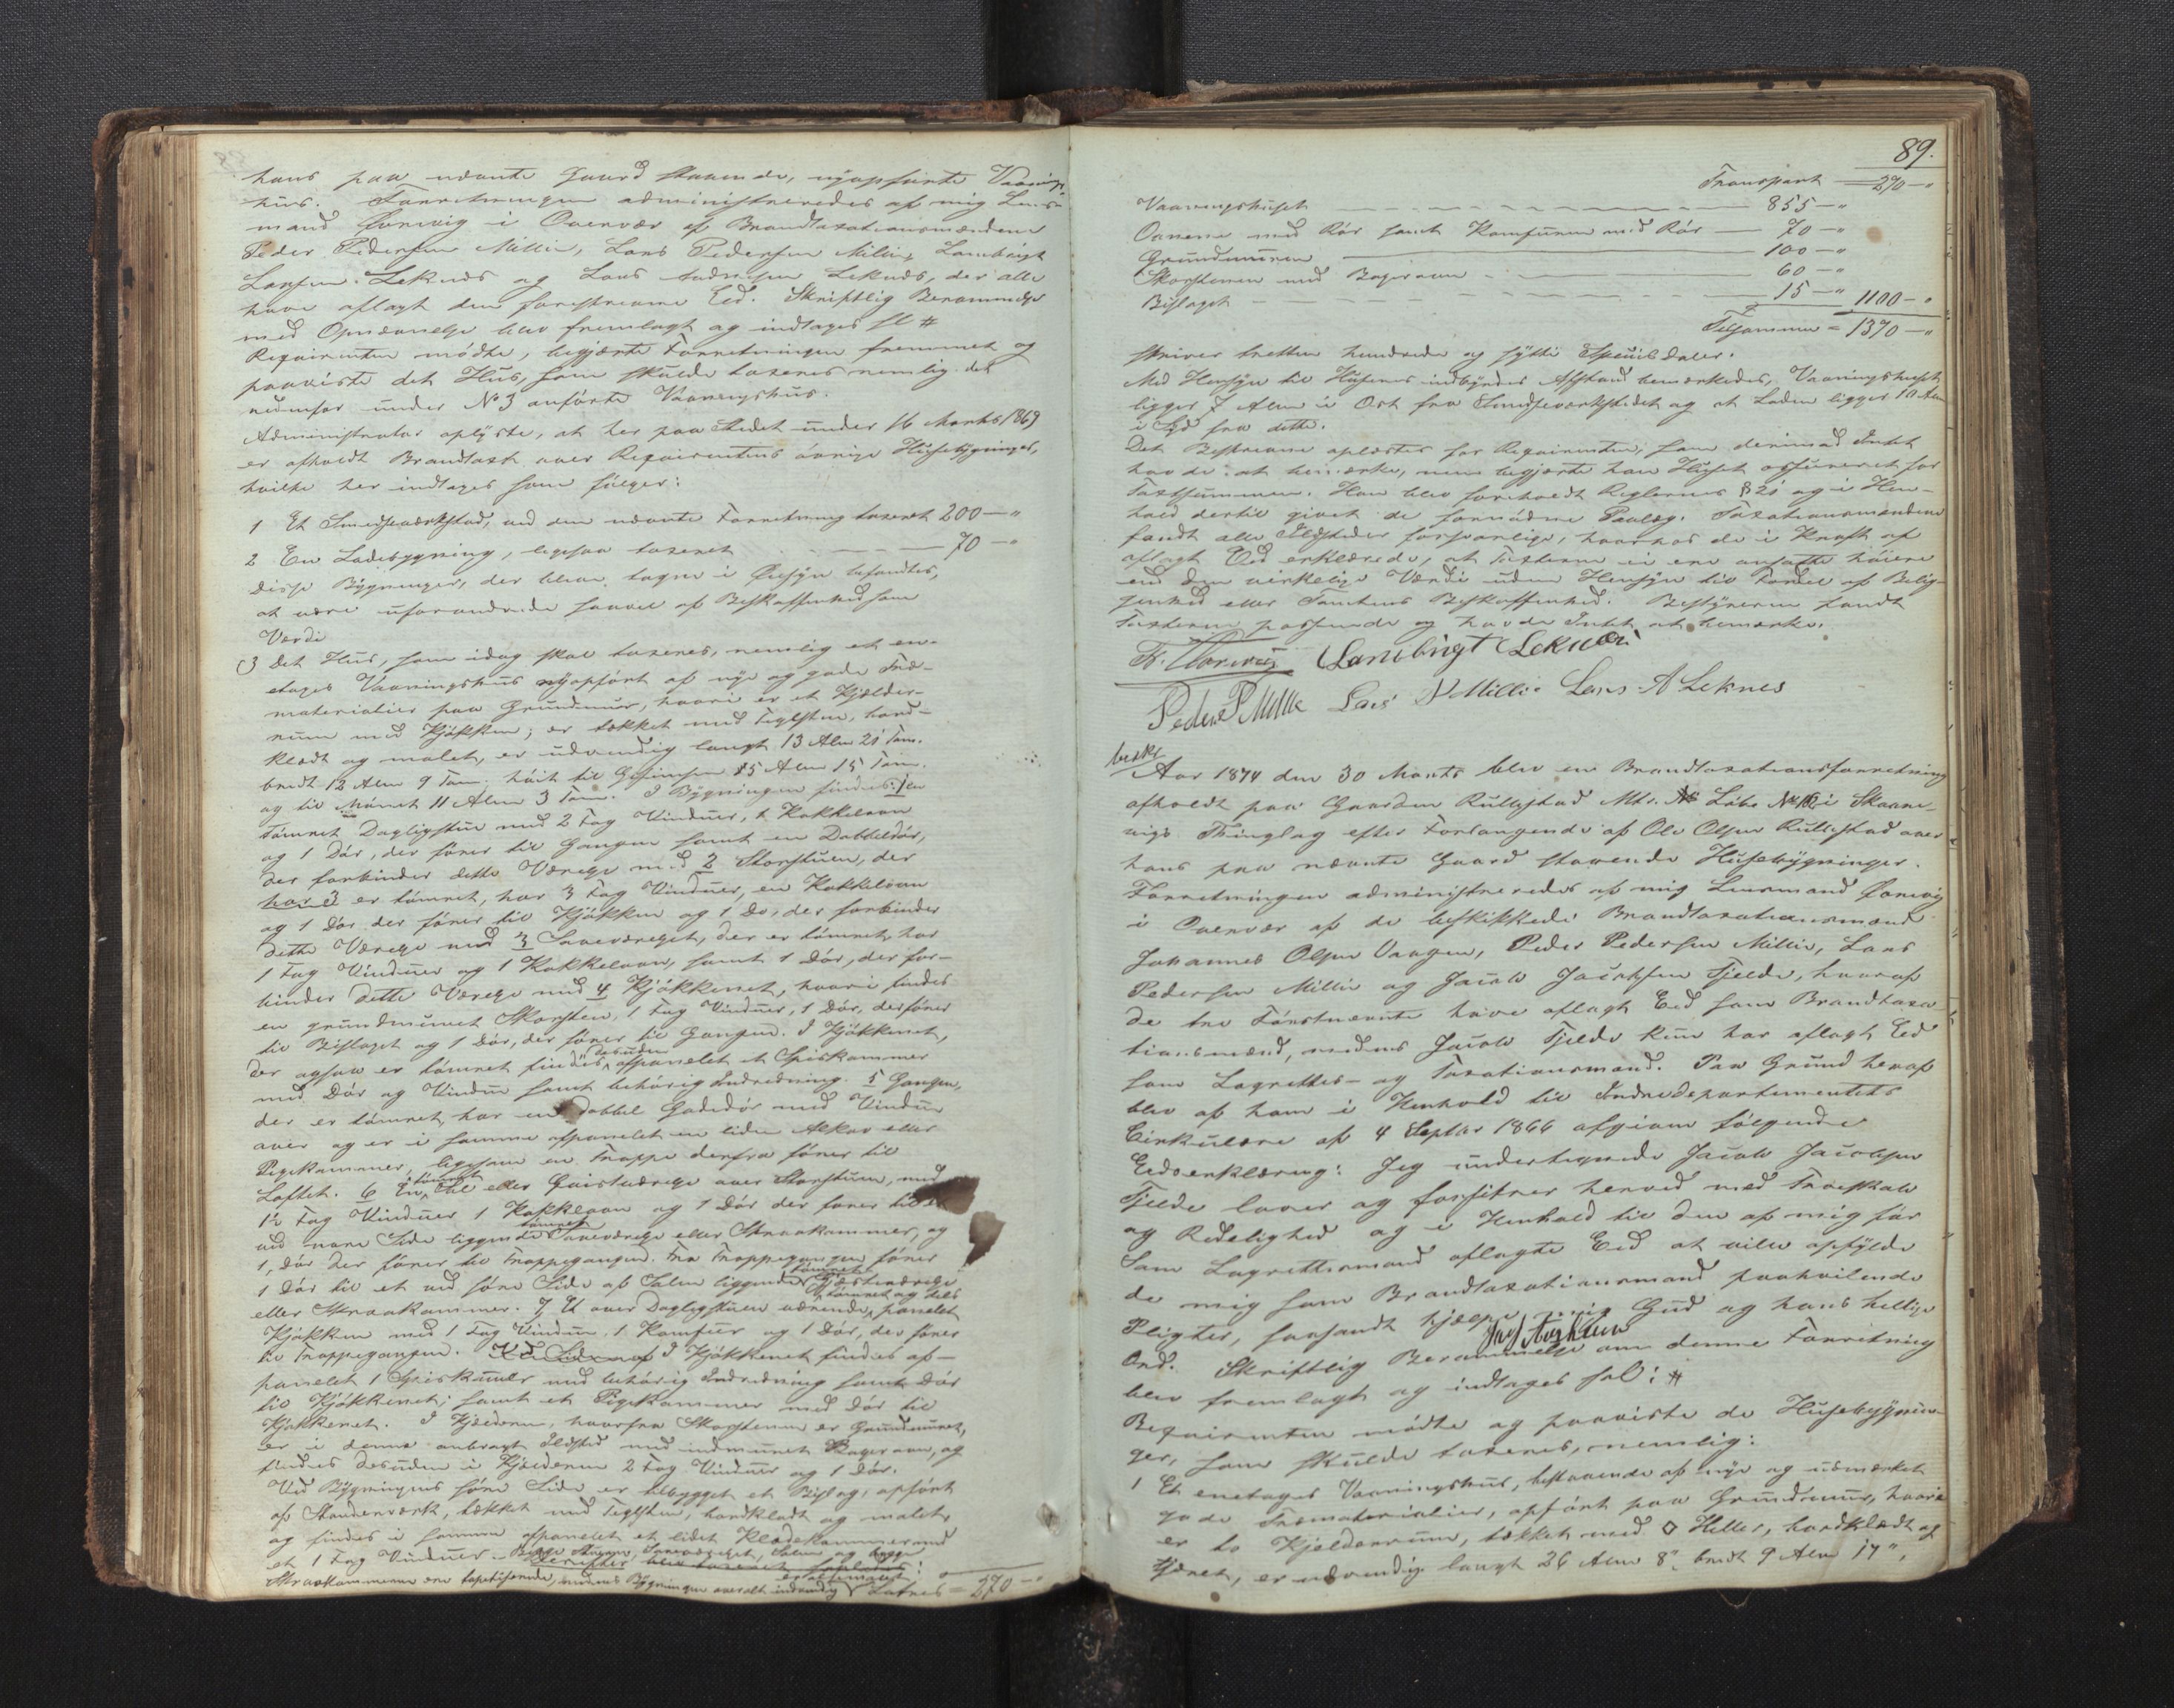 hans paa nævnte Gaard staaende, nyopførte Vaanings-
huus. Forretningen administreredes af mig Lens-
mand Ørevig i Overvær af Brandtaxationsmændene
Peder Pedersen Millie, Lars Pedersen Millie, Lambrigt
Larsen Leknes og Lars Andersen Leknes, der alle
have aflagt den foreskrevne Eed. Skriftlig Berammelse
med Opnævnelse blev fremlagt og indtages sl #
Requirenten mødte, begjærte Forretningen fremmet og
paaviste det Huus, som skulde taxeres nemlig det
nedenfor under No 3 anførte Vaaningshus.
Administrator oplyste, at her paa Stedet under 16 Marts 1869
er afholdt Brandtaxt over Requirentens øvrige Husebygninger,
hvilke her indtages som følger:
1 Et Smedieværksted, ved den nævnte Forretning taxeret 200 – "
2 En Ladebygning, ligesaa taxeret 70 – "
Disse Bygninger, der bleve tagne i Øiesyn befandtes,
at være uforandrede saavel af Beskaffenhed som
Værdi
3 Det Hus, som idag skal taxeres, nemlig et en-
etages Vaaningshus nyopført af nye og gode Træ-
materialier paa Grundmuur, hvori er et Kjælder-
rum med Kjøkken; er tækket med Teglsten, bord-
klædt og malet, er udvendig langt 13 Alen 21 Tom.
bredt 12 Alen 9 Tom. høit til Gesimsen 5 Alen 15 Tom.
og til Mønet 11 Alen 3 Tom. I Bygningen findes: 1 en
tømret Dagligstue med 2 Fag Vinduer, 1 Kakkelovn
og 1 Dør, der fører til Gangen samt en Dobbeltdør,
der forbinder dette Værelse med 2 Storstuen, der
har 3 er tømret, har 3 Fag Vinduer, en Kakkelovn
og 1 Dør der fører til Kjøkken og 1 do, der forbinder
dette Værelse med 3 Soveværelset, der er tømret, har
1 Fag Vinduer og 1 Kakkelovn, samt 1 Dør, der for-
binder dette Værelse med 4 Kjøkkenet, hvori findes
en grundmuret Skorsten, 1 Fag Vinduer, 1 Dør, der fører
til Bislaget og 1 Dør, der fører til Gangen. I Kjøkkenet,
der ogsaa er tømret findes desuden afpanelet et Spiskammer
med Dør og Vindue samt behørig Indredning. 5 Gangen,
der er tømret, har en dobbel Gadedør med Vindue
over og er i samme afpanelet en liden Alkov eller
Pigekammer, ligesom en Trappe derfra fører til
Loftet. 6 En tømret Sal eller Qvistværelse over Storstuen, med
1½ Fag Vinduer 1 Kakkelovn og 1 Dør der fører til et
ved nore Side liggende tømret Soveværelse eller Skraakammer, og
1, Dør der fører til Trappegangen. Fra Trappegangen fører
1 Dør til et ved søre Side af Salen liggende tømret Gjesteværelse
eller Skraakammer. 7 Et over Dagligstuen værende, tømret og dels panelet
Kjøkken med 1 Fag Vindue, 1 Komfur og 1 Dør, der fører
til Trappegangen. I Kjøkkenet findes af-
panelet 1 Spiskammer med behørig Indredning samt Dør
til Kjøkkenet; samt et Pigekammer med Dør til
Kjøkkenet. I Kjælderen, hvorfra Skorstenen er Grundmuret,
er i denne anbragt Ildsted med indmuret Bagerovn, og
findes desuden i Kjælderen 2 Fag Vinduer og 1 Dør.
Ved Bygningens søre Side er tilbygget et Bislag, opført
af Standerværk, tækket med Teglsten, bordklædt og malet,
og findes i samme afpanelet et lidet Klædekammer med
et 1 Fag Vinduer. Gangen, Soveværelset, Salen og begge
Skraakammerne ere tapetserede, medens Bygningen overalt indvendig er
Latus = 270 – "
89.
Transport = 270 – "
Vaaningshuset 855 – "
Ovnene med Rør samt Komfuren med Rør 70 – "
Grundmuren 100 – "
Skorstenen med Bagerovn 60 – "
Bislaget 15 – " 1100 – "
Tilsammen = 1370 – "
skriver tretten hundrede og sytti Speciedaler.
Med Hensyn til Husenes indbyrdes Afstand bemærkedes, Vaaningshuset
ligger 7 Alen i Øst fra Smedieværkstedet og at Laden ligger 10 Alen
i Syd fra dette.
Det Beskrevne oplæstes for Requirenten, som derimod Intet
havde at bemærke, men begjærte han Huset assureret for
Taxtsummen. Han blev foreholdt Reglernes § 21 og i Hen-
hold dertil givet de fornødne Paalæg. Taxationsmændene
fandt alle Ildsteder forsvarlige, hvorhos de i Kraft af
aflagt Eed erklærede, at Taxterne ei ere ansatte høiere
end den virkelige Værdi uden Hensyn til Fordel af Belig-
genhed eller Tomtens Beskaffenhed. Bestyreren fandt
Taxterne passende og havde Intet at bemærke.
Fr. Ørevig Lambrigt Leknes
Peder P Millie Lars P Millie Lars A Leknes
beskr
Aar 1874 den 30 Marts blev en Brandtaxationsforretning
afholdt paa Gaarden Rullestad Mtr. Løbe No i Skaane-
vigs Thinglag efter Forlangende af Ole Olsen Rullestad over
hans paa nævnte Gaard staaende Husebygninger.
Forretningen administreredes af mig Lensmand Ørevig
i Overvær af de beskikkede Brandtaxationsmænd
Johannes Olsen Vaagen, Peder Pedersen Millie, Lars
Pedersen Millie og Jacob Jacobsen Fjelde, hvoraf
de tre Førstnævnte have aflagt Eed som Brandtaxa-
tionsmænd, medens Jacob Fjelde kun har aflagt Eed
som Lagrettes- og Taxationsmand. Paa Grund heraf
blev af ham i Henhold til Indredepartementets
Cirkulære af 4 Septbr 1866 afgiven følgende
Eedserklæring: Jeg undertegnede Jacob Jacobsen
Fjelde lover og forsikrer herved med Troeskab
og Redelighed og i Henhold til den af mig før
Som Lagrettesmand aflagte Eed at ville opfylde
de mig som Brandtaxationsmand paahvilende
Pligter, saasandt hjælpe mig Gud og hans hellige
Ord. Skriftlig Berammelse om denne Forretning
blev fremlagt og indtages sal: #
Requirenten mødte og paaviste de Husebygnin-
ger, som skulde taxeres, nemlig:
1 Et enetages Vaaningshus, bestaaende af nye og udmærket
gode Træmaterialier, opført paa Grundmuur, hvori
er to Kjælderrum, tækket med Heller, bordklædt og
tjæret, er udvendig langt 26 Alen 8", bredt 9 Alen 17",